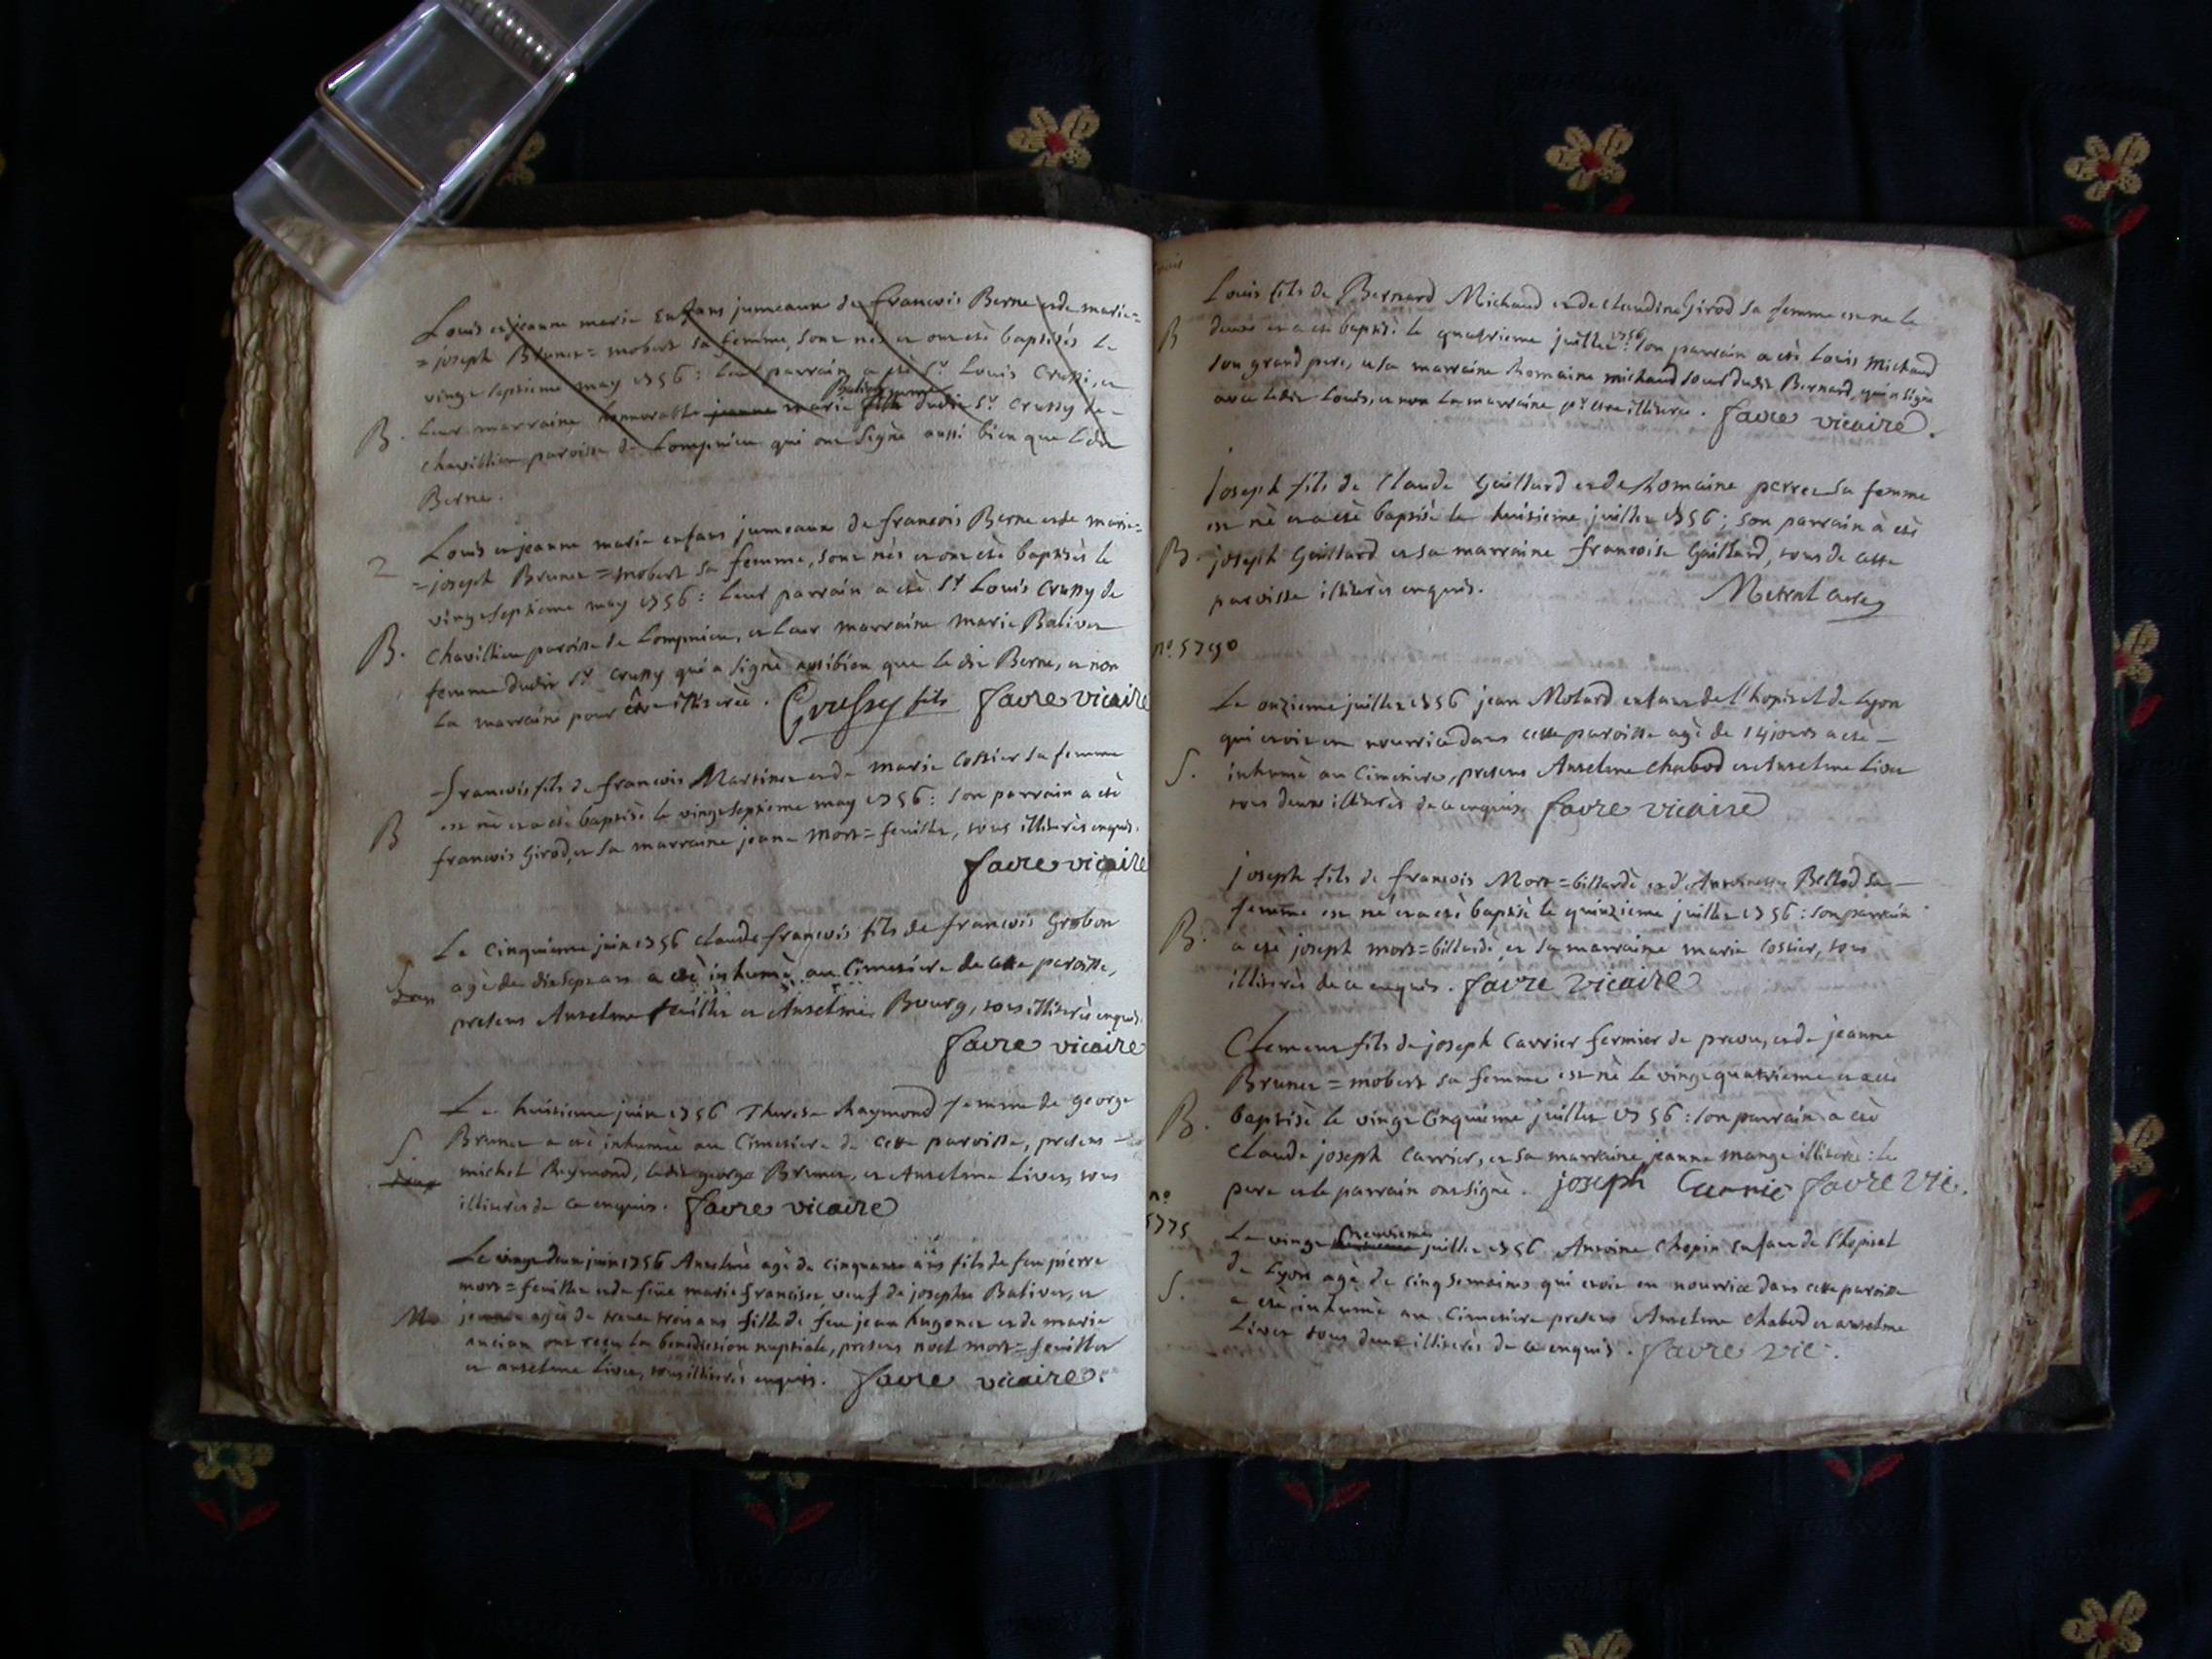 Louis et jeanne marie Enfans jumeaux de francois Berne et de marie=
=joseph Brunet=mobert sa femme, sont nés et ont été baptisés le
vingt septieme may 1756: leur parrain a été Sr Louis Crussy, et
Batinet femme
B. Leur marraine honnorable jeanne marie fille dudit Sr Crussy de-
chavillieu paroisse de Lompnieu qui ont signé aussi bien que ledit
Berne.
2 Louis et jeanne marie enfans jumeaux de francois Berne et de marie=
=joseph Brunet=mobert sa femme, sont nés et ont été baptisés le
vingt septieme may 1756: leur parrain a été Sr Louis Crussy de
B. Chavillieu paroisse de Lompnieu, et leur marraine marie Balivet
femme dudit Sr Crussy qui a signé aussi bien que le dit Berne, et non
la marraine pour être illiterée. Crussy fils favre vicaire
francois fils de francois Martinet et de marie Cossier sa femme
B est né et a été baptisé le vingt septieme may 1756: son parrain a été
francois Girod, et sa marraine jeane mort=feuillet, tous illiterés enquis.
favre vicaire
Le Cinquieme juin 1756 Claude francois fils de francois Grobon
agé de dix sept ans a été inhumé au Cimetiere de cette paroisse,
presens Anselme feuillet et Anselme Bourg, tous illiterés enquis.
favre vicaire
Le huitieme juin 1756 Therese Raymond femme de george
S. Brunet a été inhumée au Cimetiere de cette paroisse, presens
michel Reymond, ledit george Brunet, et Anselme Livet, tous
illiterés de ce enquis. favre vicaire
Le vingt deux juin 1756 Anselme agé de cinquante ans fils de feu pierre
mort=feuillet et de feüe marie francisez, veuf de josephte Balivet, et
M jeanne agée de trente trois ans fille de feu jean hugonet et de marie
ancian ont reçu la benediction nuptiale, presens noel mort=feuillet
et anselme Livet, tous illiterés enquis. favre vicaire.
Louis fils de Bernard Michaud et de claudine Girod sa femme est né le
B deux et a été baptisé le quatrieme juillet 1756 son parrain a été Louis Michaud
son grand pere, et sa marraine Romaine michaud soeur dudit Bernard, qui a signé
avec ledit Louis, et non la marraine pr etre illiterée. favre vicaire.
joseph fils de Claude Guillard et de Romaine perret sa femme
est né et a été baptisé le huitieme juillet 1756; son parrain à été
B. joseph Guillard et sa marraine francoise Guillard, tous de cette
paroisse illiterés enquis. Metral curé
no. 5750
Le onzieme juillet 1756 jean Motard enfant de l'hopital de Lyon
qui etoit en nourrice dans cette paroisse agé de 14 jours a été -
S. inhumé au Cimetiere, presens Anselme Chabod et Anselme Livet
tous deux illiterés de ce enquis favre vicaire
joseph fils de francois Mort=billardé et d'Antoinette Bellod sa -
femme est né et a été baptisé le quinzieme juillet 1756: son parrain
B. a été joseph mort=billardé, et sa marraine marie Cossier, tous
illiterés de ce enquis. favre vicaire
Clement fils de joseph Carrier fermier de prvou, et de jeanne
Brunet = mobert sa femme est né le vingt quatrieme et a été
B. baptisé le vingt Cinquieme juillet 1756: son parrain a été
Claude joseph Carrier, et sa marraine jeanne mange illiterée: le
pere et le parrain ont signé. joseph Carrie favre vic.
no
5775
Le vingt neuvieme juillet 1756 Antoine Chopin Enfant de l'hopital
de Lyon agé de cinq semaines qui etoit en nourrice dans cette paroisse
S. a été inhumé au Cimetiere presens Anselme Chabod et anselme
Livet tous deux illiterés de ce enquis. favre vic.